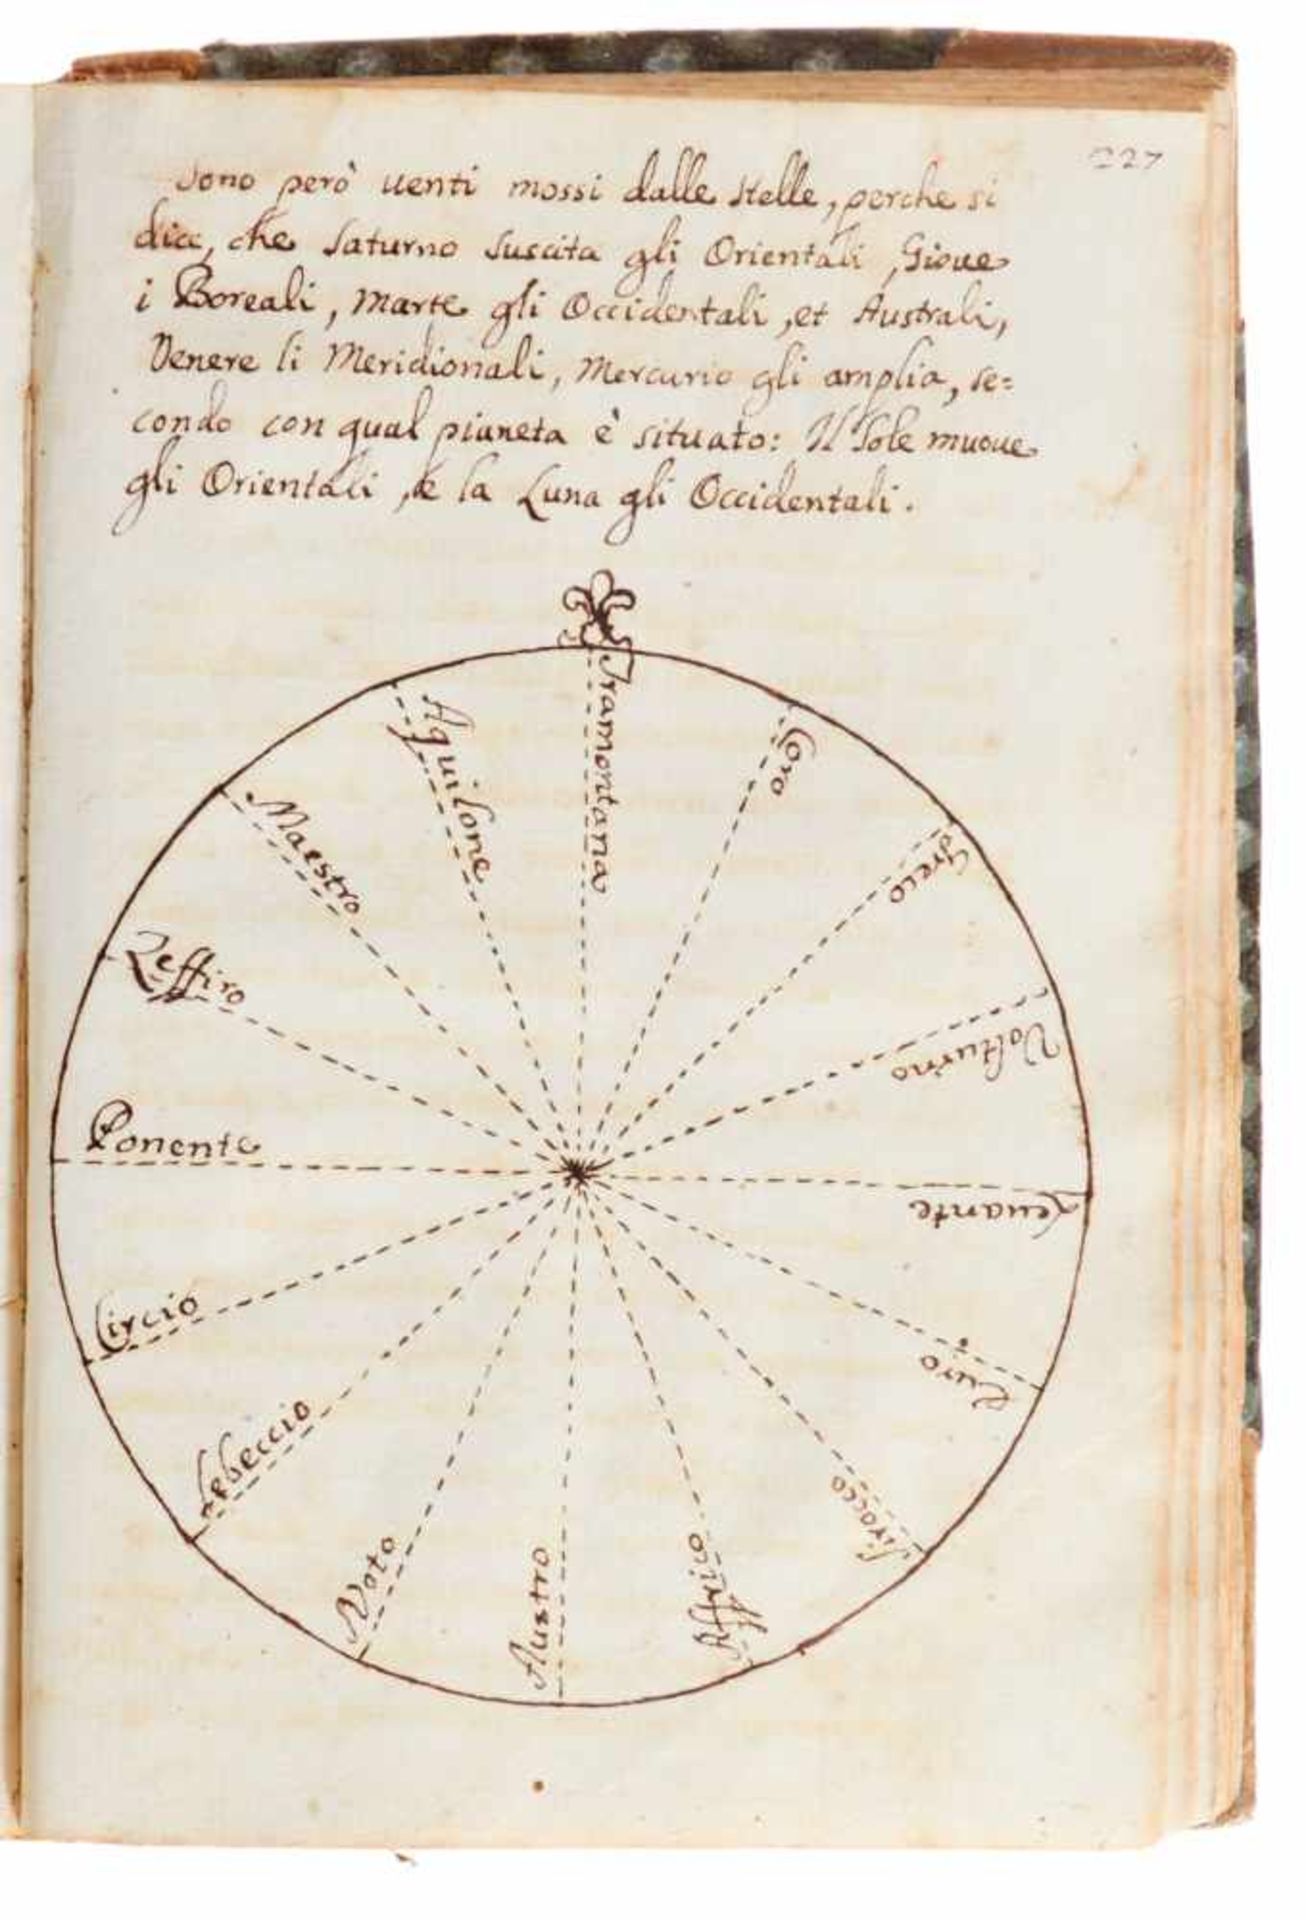 227
Sono però uenti mossi dalle stelle, perche si
dice, che Saturno suscita gli Orientali, Gioue
i Boreali, Marte gli Occidentali, et Australi,
Venere li Meridionali, Mercurio gli amplia, se=
condo con qual pianeta è situato: Il Sole muoue
gli Orientali, e la Luna gli Occidentali.
Tramontana
Coro
Greco
Volturno
Leuante
Euro
Sirocco
Affrico
Austro
Noto
Lebeccio
Circio
Ponente
Zeffiro
Maestro
Aquilone